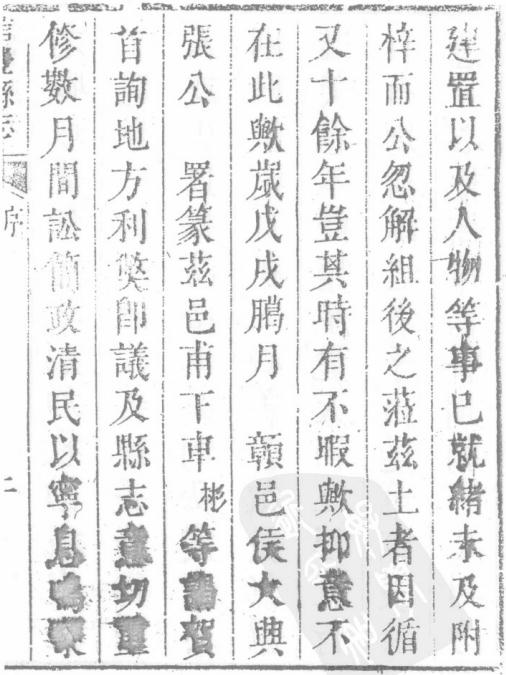 建置以及人物等事已就緒未及附
梓而公忽解組後之蒞茲土者因循
又十餘年豈其時有不暇歟抑意不
在此歟歲戊戌臈月　贛邑侯大興
張公　署篆茲邑甫下車彬等謁賀
首詢地方利獘即議及縣志意切重
修數月間訟簡政清民以寧息
縣志
序
二